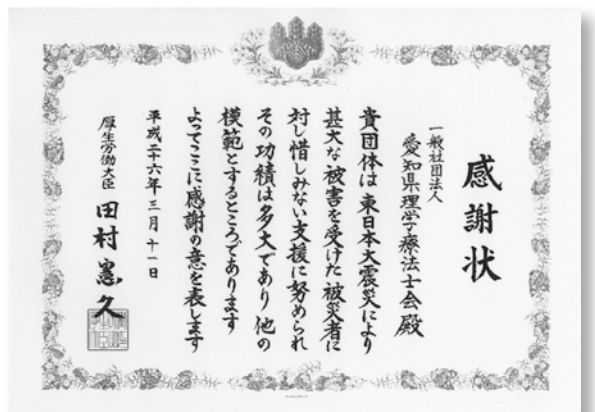 感謝状
一般社団法人
愛知県理学療法士会殿
貴団体は東日本大震災により
甚大な被害を受けた被災者に
対し惜しみない支援に努められ
その功績は多大であり他の
模範とするところであります
よってここに感謝の意を表します
平成二十六年三月十一日
厚生労働大臣 田村憲久